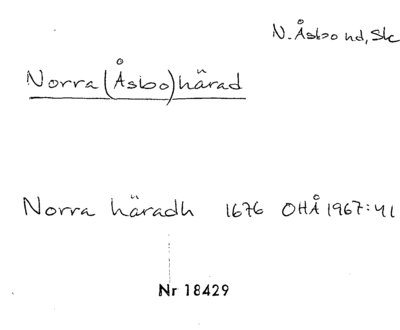 N. Åsbo hd, Sk
Norra (Åsbo) härad
Norra häradh 1676 OHÅ 1967:41
Nr 18429